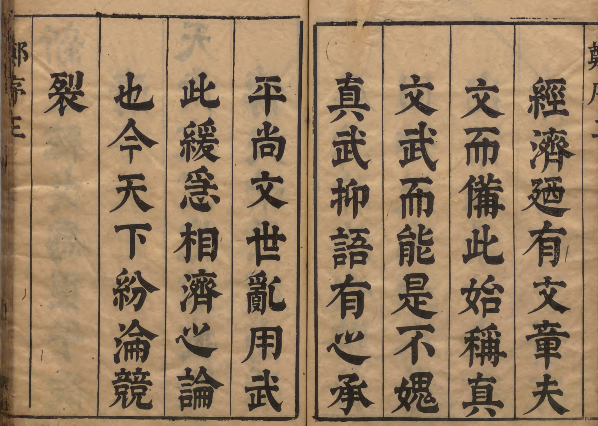 經濟廼有文章夫
文而備此始稱真
文武而能是不媿
真武抑語有之承
平尚文世亂用武
此緩急相濟之論
也今天下紛淪競
裂
鄭序